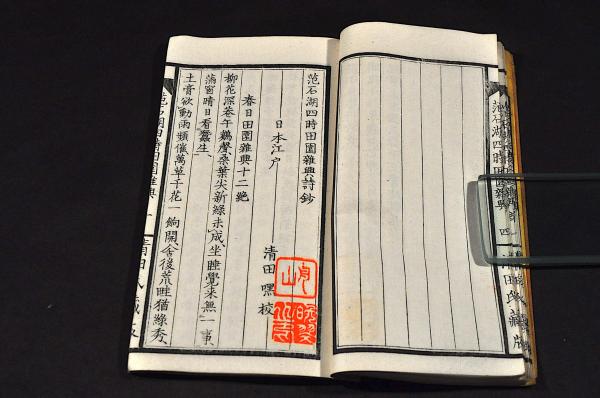 范石湖四時田園雜興 四
范石湖四時田園雜興詩鈔
日本江戶
清田嘿校
春日田園雜興十二絕
柳花深巷午鷄聲桑葉尖新綠未成坐睡覺來無一事
滿窗晴日看蠶生
土膏欲動雨頻催萬草千花一餉開舍後荒畦猶綠秀